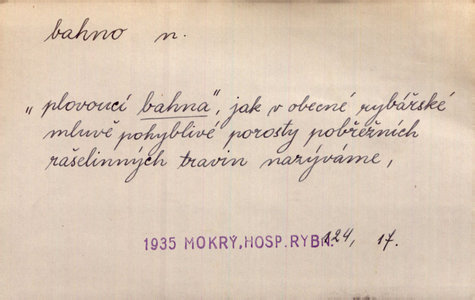 bahno n.
„plovoucí bahna", jak v obecné rybářské
mluvě pohyblivé porosty pobřežních
rašelinných travin nazýváme,
1935 MOKRÝ, HOSP. RYBN. 124, 17.